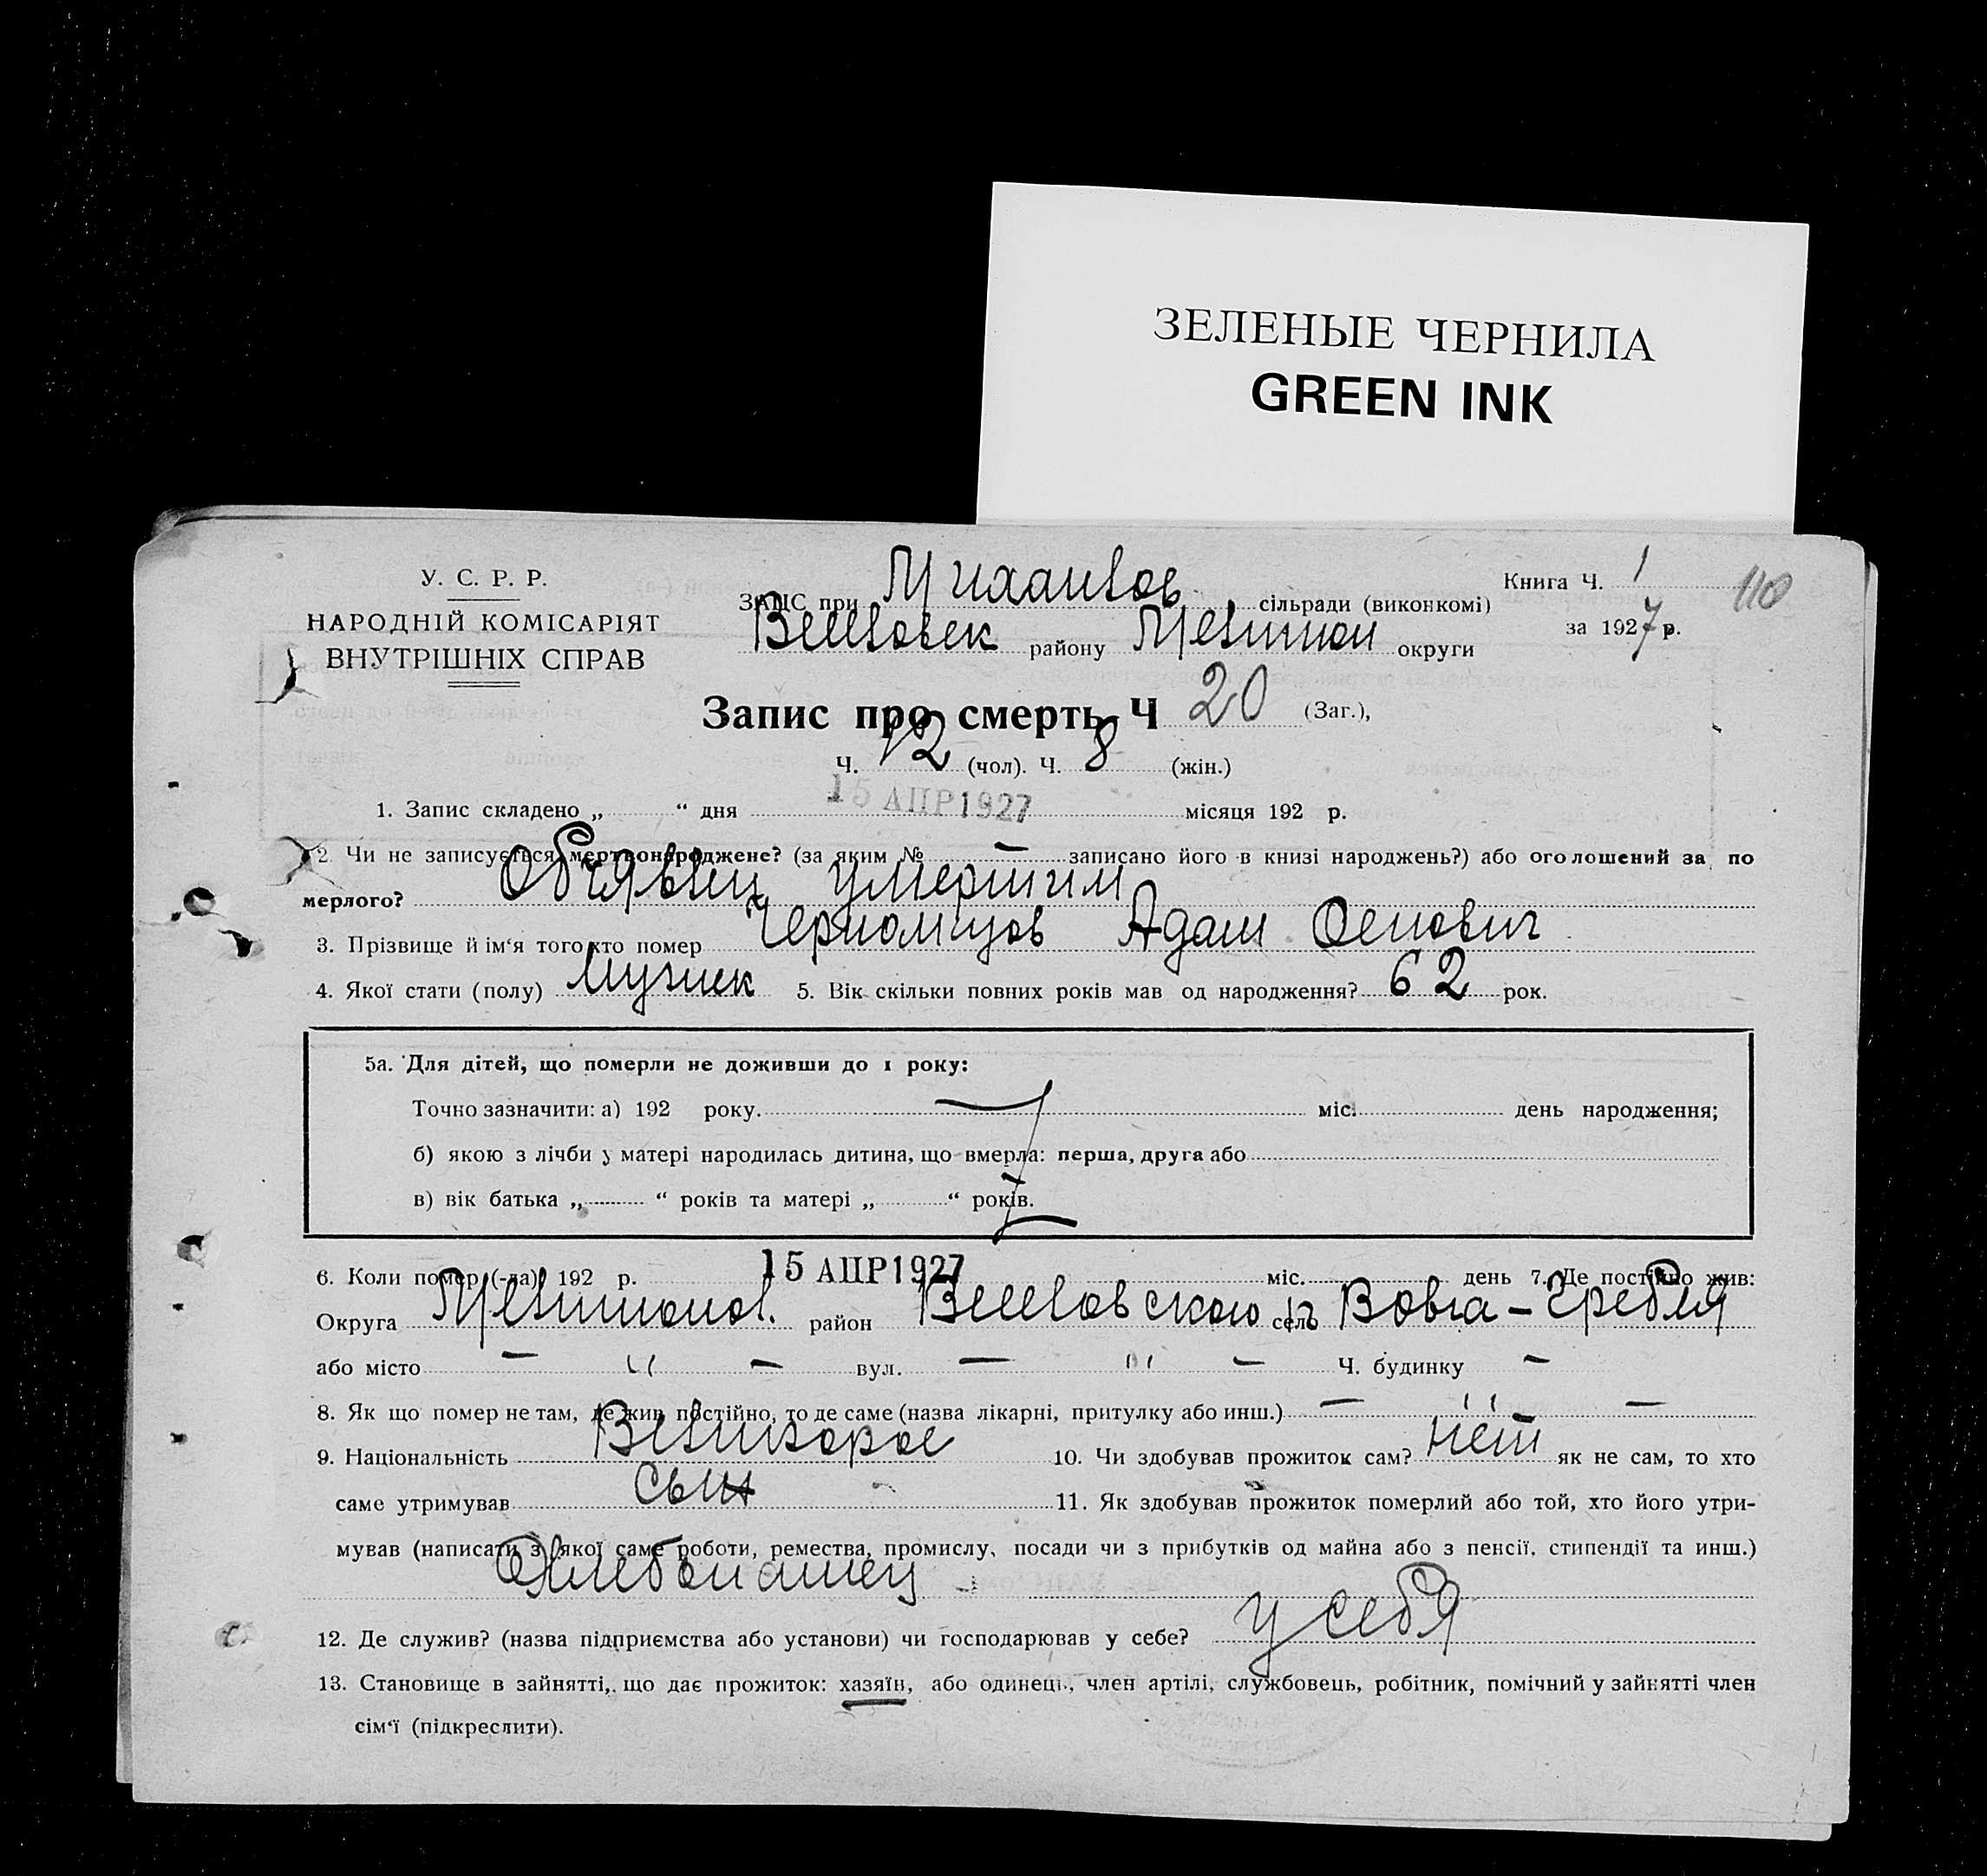 ЗЕЛЕНЫЕ ЧЕРНИЛА
GREEN INK
У. С. Р. Р.
НАРОДНІЙ КОМІСАРІЯТ
ВНУТРІШНІХ СПРАВ
ЗАГС при Михайлов сільради (виконкомі)
району округи
Книга Ч. 1
110
за 1927 р.
Запис про смерть Ч 20 (Заг.),
Ч. 12 (чол). Ч. 8 (жін.)
1. Запис складено „ “ дня 15 АПР 1927 місяця 192 р.
2. Чи не записується мертвонароджене? (за яким № — записано його в книзі народжень?) або оголошений за по
мерлого? умершим
3. Прізвище й ім‘я того хто помер Черномцов Адам Осипович
4. Якої стати (полу) 5. Вік скільки повних років мав од народження? 62 рок.
5а. Для дітей, що померли не доживши до 1 року:
Точно зазначити: а) 192 року. міс. день народження;
б) якою з лічби у матері народилась дитина, що вмерла: перша, друга або
в) вік батька „ “ років та матері „ “ років.
6. Коли помер (-ла) 192 р. 15 АПР 1927 міс. день 7. Де постійно жив:
Округа район село
або місто — " — вул. — " — Ч. будинку —
8. Як що помер не там, де жив постійно, то де саме (назва лікарні, притулку або инш.) — " —
9. Національність Великорос 10. Чи здобував прожиток сам? нет як не сам, то хто
саме утримував сын 11. Як здобував прожиток померлий або той, хто його утри-
мував (написати з якої саме роботи, ремества, промислу, посади чи з прибутків од майна або з пенсії, стипендії та инш.)
Хлебопашец
12. Де служив? (назва підприємства або установи) чи господарював у себе? у себя
13. Становище в зайнятті, що дає прожиток: хазяїн, або одинець, член артілі, службовець, робітник, помічний у зайнятті член
сім‘ї (підкреслити).